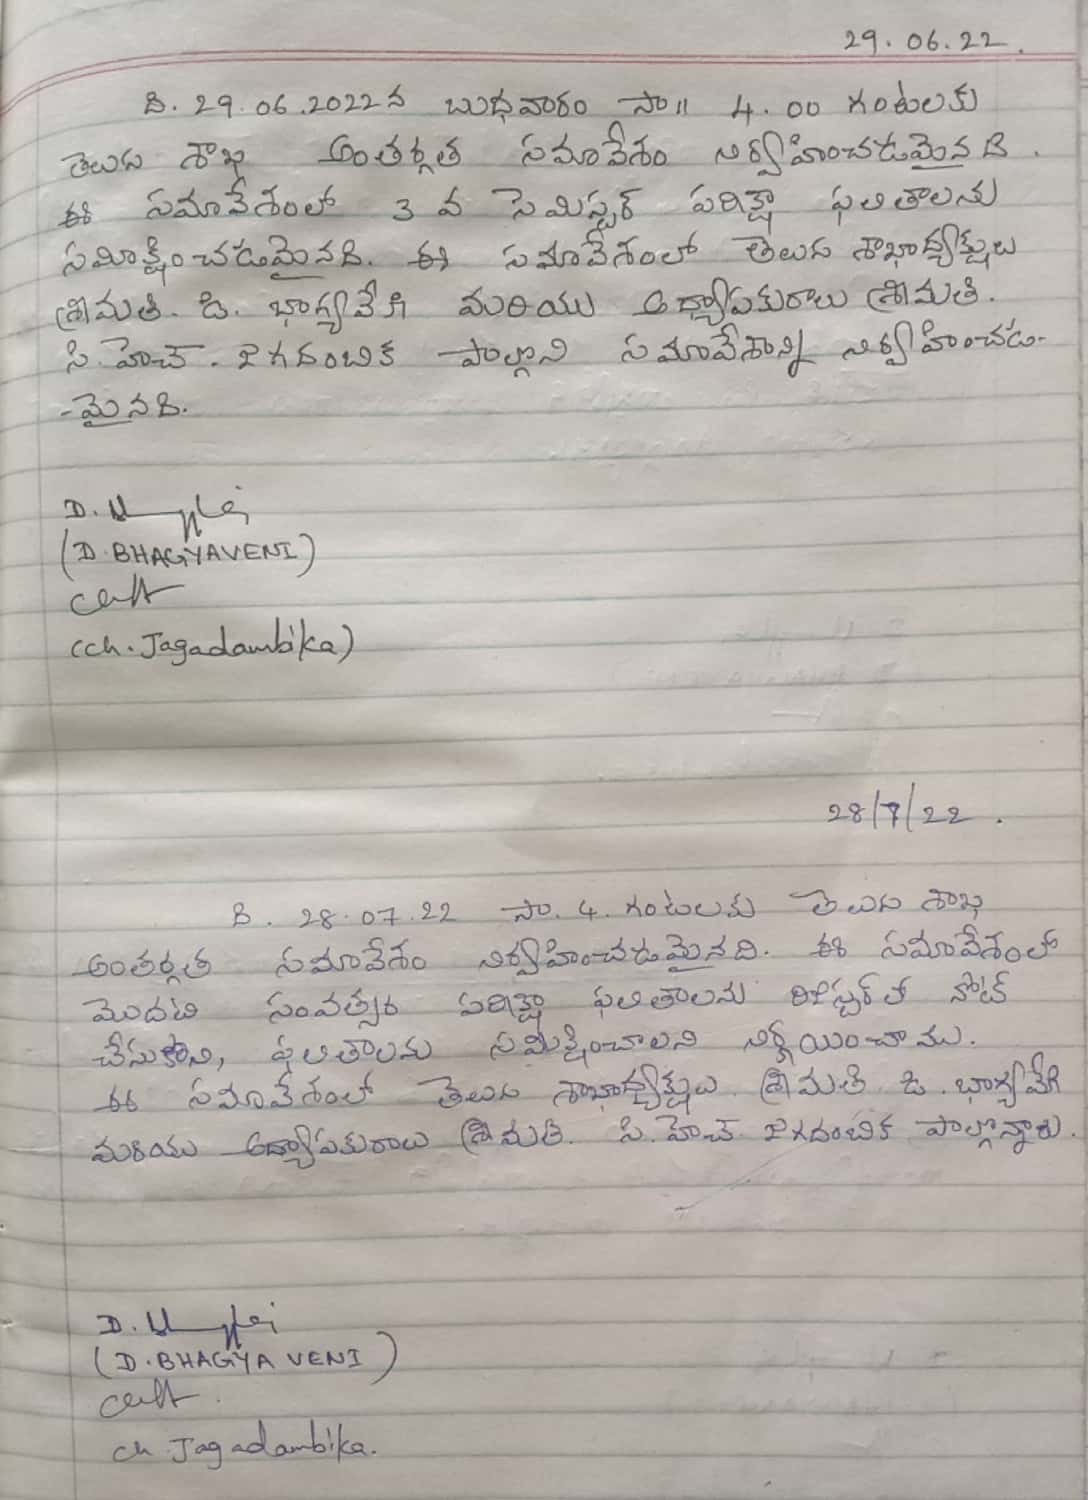 29.06.22.
ది. 29.06.2022న బుధవారం సా॥ 4.00 గంటలకు
తెలుగు శాఖ అంతర్గత సమావేశం నిర్వహించడమైనది.
ఈ సమావేశంలో 3 వ సెమిస్టర్ పరీక్షా ఫలితాలను
సమీక్షించడమైనది. ఈ సమావేశంలో తెలుగు శాఖాధ్యక్షులు
శ్రీమతి. డి. భాగ్యవేణి మరియు అధ్యాపకురాలు శ్రీమతి.
సి. హెచ్. జగదంబిక పాల్గొని సమావేశాన్ని నిర్వహించడ-
-మైనది.
(D. BHAGYAVENI)
(ch. Jagadambika)
28/7/22.
ది. 28.07.22 సా. 4. గంటలకు తెలుగు శాఖ
అంతర్గత సమావేశం నిర్వహించడమైనది. ఈ సమావేశంలో
మొదటి సంవత్సర పరీక్షా ఫలితాలను రిజిస్టర్ లో నోట్
చేసుకొని, ఫలితాలను సమీక్షించాలని నిర్ణయించాము.
ఈ సమావేశంలో తెలుగు శాఖాధ్యక్షులు శ్రీమతి డి. భాగ్యవేణి
మరియు అధ్యాపకురాలు శ్రీమతి. సి. హెచ్. జగదంబిక పాల్గొన్నారు.
(D. BHAGYA VENI)
ch. Jagadambika.